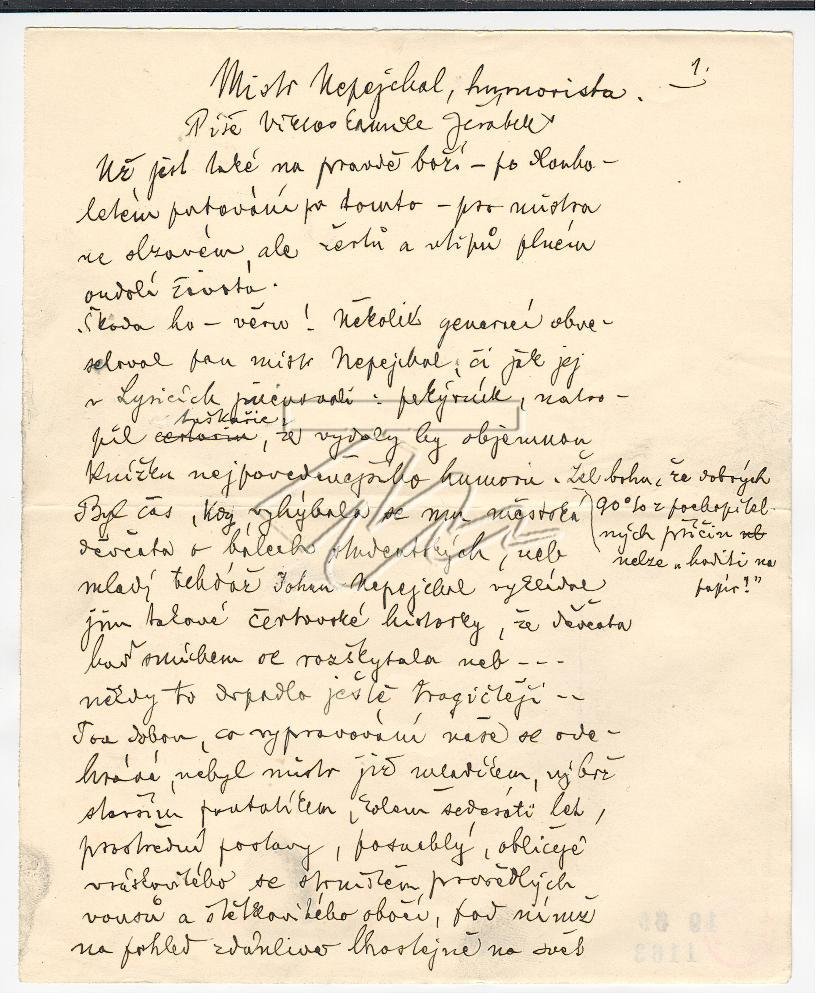 1.
Mistr Nepejchal, humorista.
Píše Viktor Kamile Jeřábek
Už jest také na pravdě boží – po dlouho-
letém putování po tomto – pro mistra
ne slzavém, ale žertů a vtipů plném
oudolí života.
Škoda ho – věru! Několik generací obve-
seloval pan mistr Nepejchal, či jak jej
v Lysicích
pekýrník, natro-
taškařic,
pil, že vydaly by objemnou
knížku nejpovedenějšího humoru. Žel bohu, že dobrých
90% z pochopitel-
ných příčin
nelze „hoditi na
papír!"
Byl čas, kdy vyhýbala se mu městská
děvčata o bálech studentských, neb
mladý tehdáž Johan Nepejchal vykládal
jim takové čertovské historky, že děvčata
buď smíchem se rozškytala neb - - -
někdy to dopadlo ještě tragičtěji - -
Tou dobou, co vypravování naše se ode-
hrává, nebyl mistr již mladíkem, nýbrž
starším pantatíkem, kolem šedesáti let,
prostřední postavy, posmeblý, obličeje
vráskovitého se strništěm prošedlých
vousů a štětkovitého obočí, pod nímž
na pohled zdánlivě lhostejně na svět